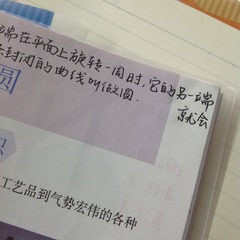 端在平面上旋转一周时,它的另一端
就会
封闭的曲线叫做圆.
圆
工艺品到气势宏伟的各种